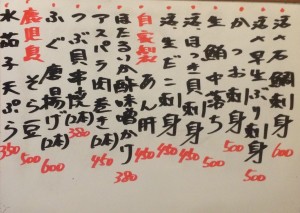 活〆石鯛刺身 600
活〆早生ぶり刺身 500
かつお刺身 500
生鮪中落ち 500
活ほき貝刺身 450
活生だこ刺身 450
自家製あん肝 450
ほたるいか酢味噌かけ 380
アスパラ肉巻き(2本) 450
つぶ貝串焼(2本) 380
ふぐ唐揚げ 600
鹿児島そら豆 500
水茄子天ぷら 350